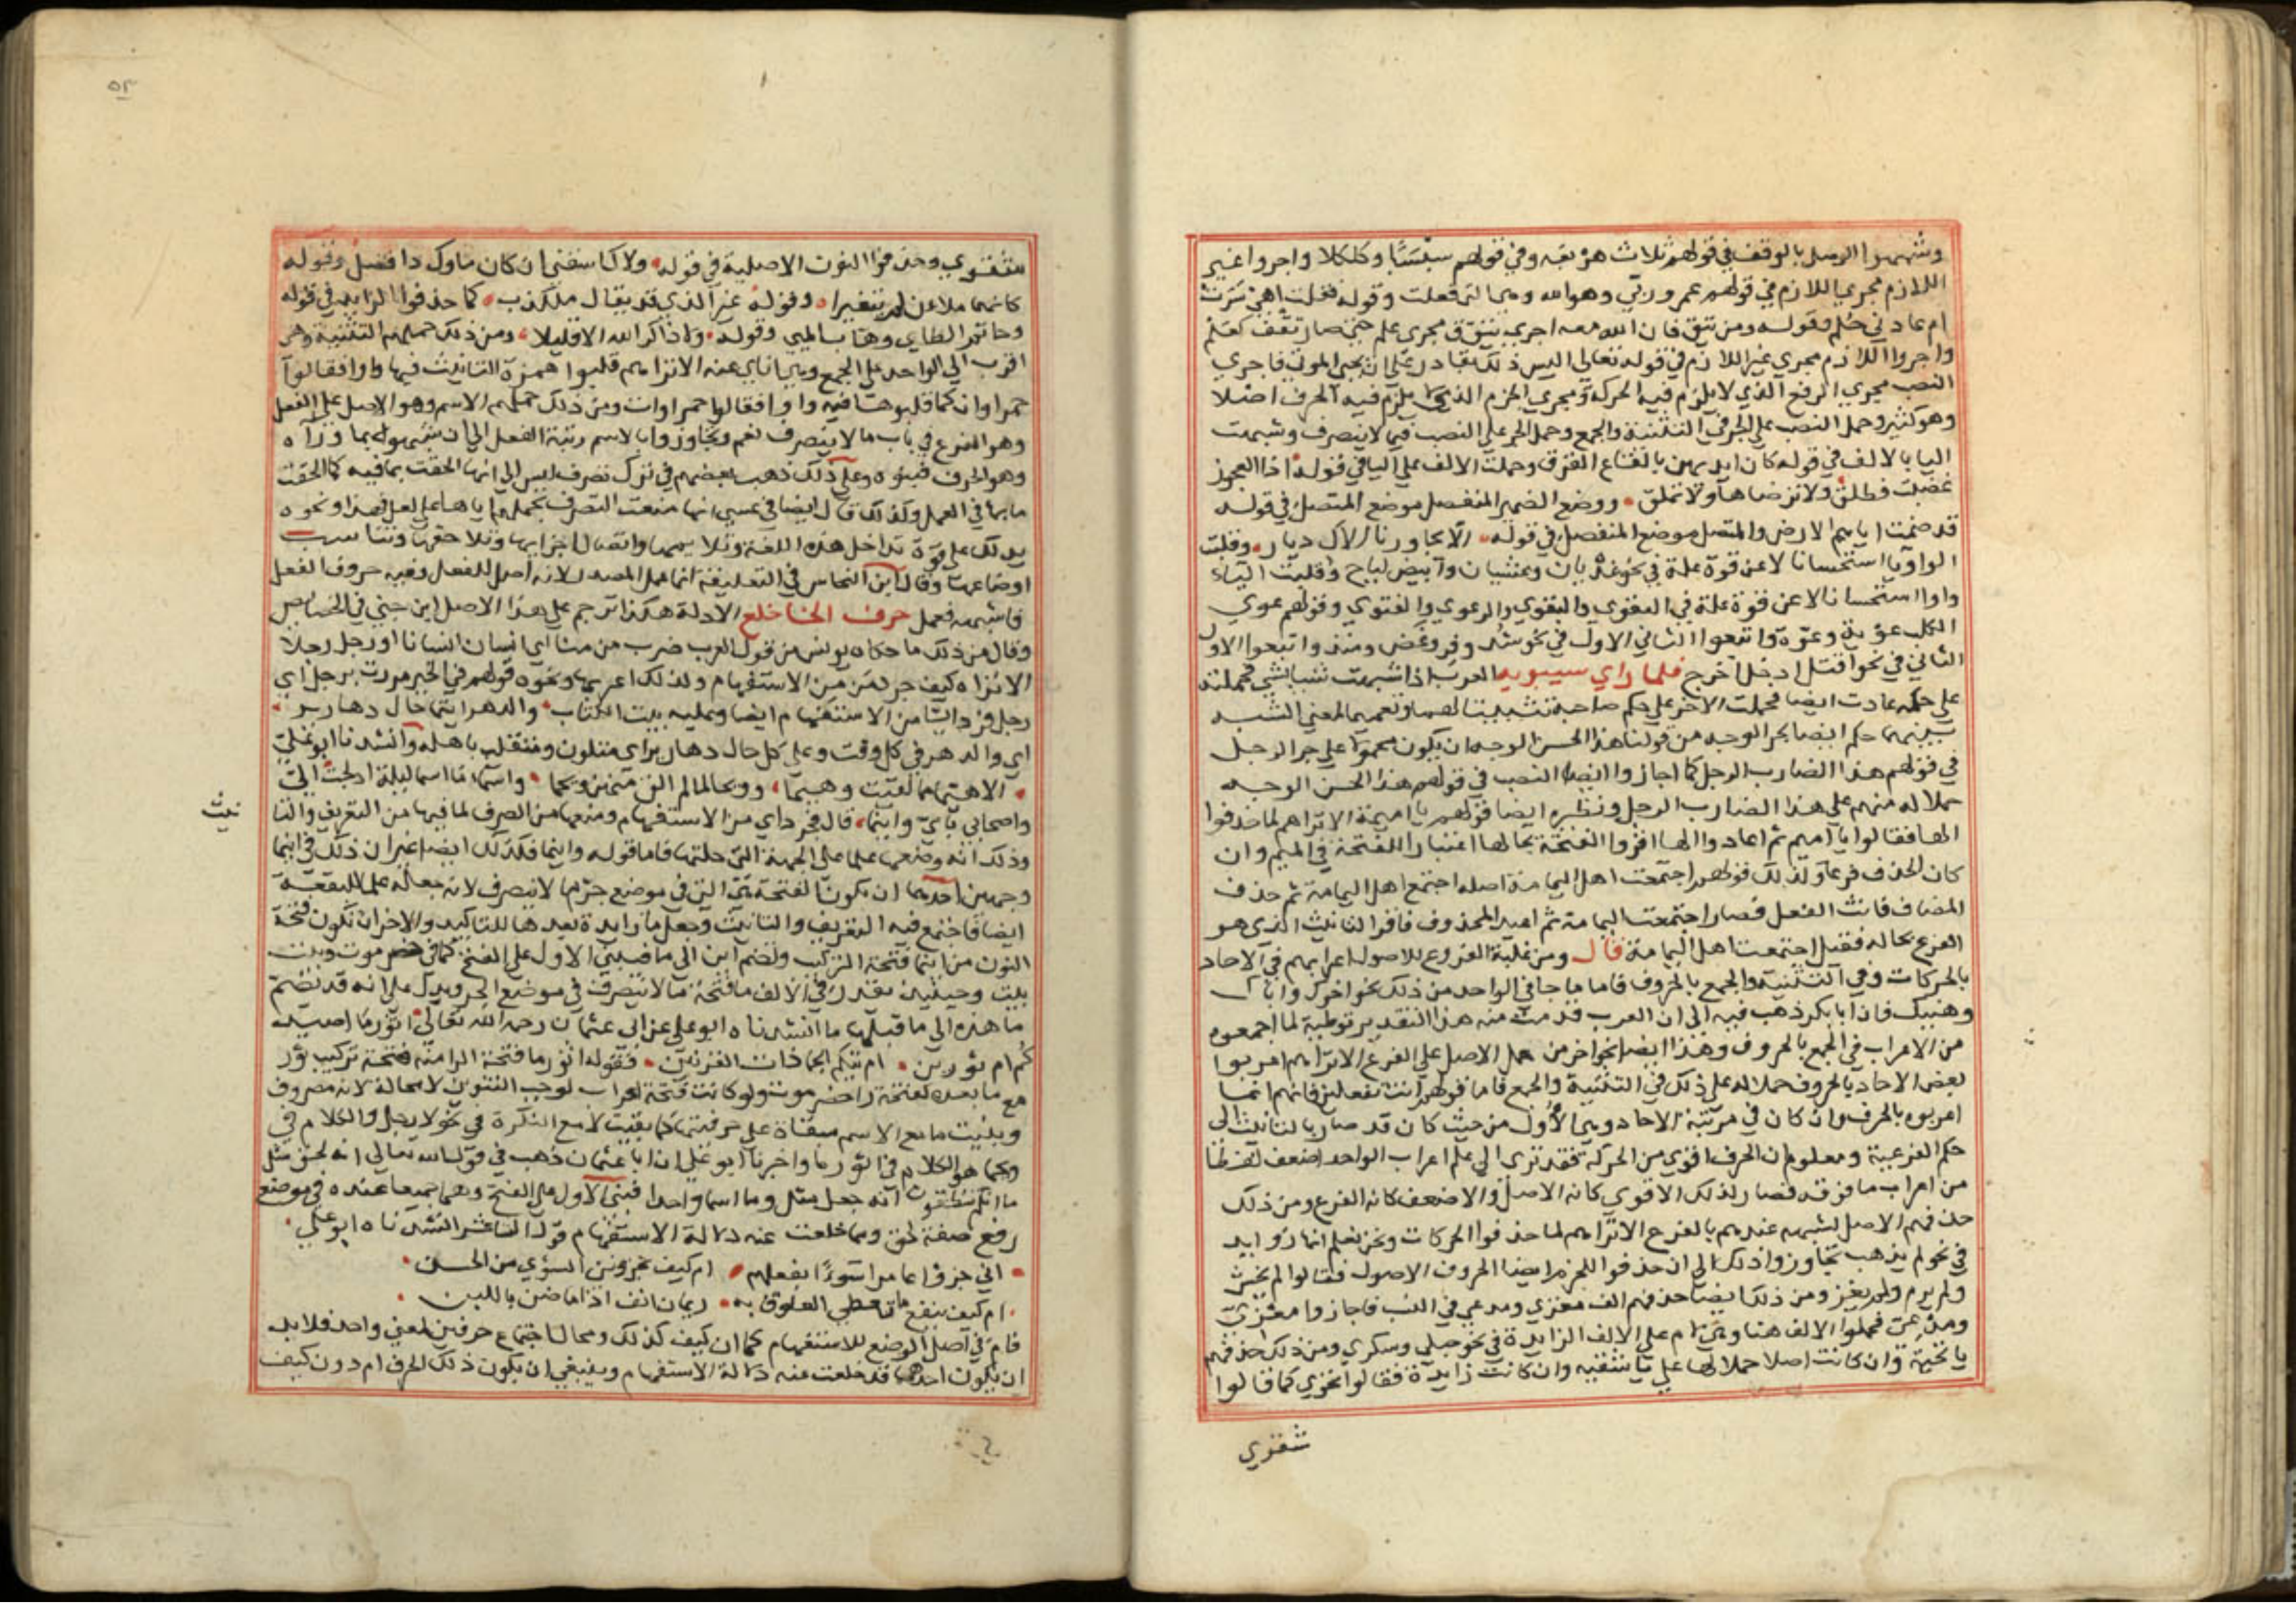 وشبهوا الوصل بالوقف في قولهم ثلاث هربعه وفي قولهم سبسبا وكلكلا واجروا غير
اللازم مجري اللازم في قولهم عمرو ربي وهو الله وهي التي فعلت وقوله فقلت اهي سرت
ام عادني حلم وقوله ومن يتق فان الله معه اجري تتق ف مجري علم حتي صار تقف كعلم
واجروا اللازم مجري غير اللازم في قوله تعالي اليس ذلك بقادر علي ان يحيي الموتي فاجري
النصب مجري الرفع الذي لا يلزم فيه الحركة ومجري الجزم الذي لا يلزم فيه الحرف اصلا
وهو كثير وحمل النصب علي الجر في التثنية والجمع وحمل الجر علي النصب فيما لا ينصرف وشبهت
اليا بالالف في قوله كان ايديهن بالقاع القرق وحملت الالف علي اليا في قوله اذا العجوز
غضبت فطلق ولا ترضاها ولا تملق ووضع الضمير المنفصل موضع المتصل في قوله
قد ضمنت اياهم الارض والمتصل موضع المنفصل في قوله الا يجاورنا الاك ديار وقلبت
الواو يا استحسانا لا عن قوة علة في نحو غديان وعشيان وابيض لياح وقلبت الياء
واوا استحسانا لا عن قوة علة في التقوي والبقوي والرعوي والفتوي وقولهم عوي
الكلب عوية وعوة واتبعوا الثاني الاول في نحو شد وفر وعض ومنذ واتبعوا الاول
الثاني في نحو اقتل ادخل اخرج فلما راي سيبويه العرب اذا شبهت شيا بشي فحملته
علي حكمه عادت ايضا فحملت الاخر علي حكم صاحبه تثبيتا لهما وتعميما لمعني الشبه
بينهما حكم ايضا بجر الوجه من قولنا هذا الحسن الوجه ان يكون محمولا علي جر الرجل
في قولهم هذا الضارب الرجل كما اجازوا ايضا النصب في قولهم هذا الحسن الوجه
حملا له منهم علي هذا الضارب الرجل ونظيره ايضا قولهم يا اميمة الا تراهم لما حذفوا
الها فقالوا يا اميم ثم اعادوا الها اقروا الفتحة بحالها اعتبارا للفتحة في الميم وان
كان الحذف فرعا وكذلك قولهم اجتمعت اهل اليمامة اصله اجتمع اهل اليمامة ثم حذف
المضاف فانث الفعل فصار اجتمعت اليمامة ثم اعيد المحذوف فاقر التانيث الذي هو
الفرع بحاله فقيل اجتمعت اهل اليمامة قال ومن غلبة الفروع للاصول اعرابهم في الاحاد
بالحركات وفي التثنية والجمع بالحروف فاما ما جا في الواحد من ذلك نحو اخوك واباك
وهنيك فان ابا بكر ذهب فيه الي ان العرب قدمت منه هذا القدر توطية لما اجمعوه
من الاعراب في الجمع بالحروف وهذا ايضا نحو اخر من حمل الاصل علي الفرع الا تراهم اعربوا
بعض الاحاد بالحروف حملا له علي ذلك في التثنية والجمع فاما قولهم انت تفعلين فانهم انما
اعربوه بالحرف وان كان في مرتبة الاحاد وهي الاول من حيث كان قد صار بالتانيث الي
حكم الفرعية ومعلوم ان الحرف اقوي من الحركة فقد تري الي علم اعراب الواحد اضعف لفظا
من اعراب ما فوقه فصار لذلك الاقوي كانه الاصل والاضعف كانه الفرع ومن ذلك
حذفهم الاصل لشبهه عندهم بالفرع الا تراهم لما حذفوا الحركات ونحن نعلم انها زوايد
في نحو لم يذهب تجاوزوا ذلك الي ان حذفوا للجزم ايضا الحروف الاصول فقالوا لم يخش
ولم يرم ولم يغز ومن ذلك ايضا حذفهم الف مغزي ومدعي في النسب فاجازوا مغزي
ومدعي فحملوا الالف هنا وهي لام علي الالف الزايدة في نحو حبلي وسكري ومن ذلك حذفهم
يا تحية وان كانت اصلا حملا لها علي يا شقية وان كانت زايدة فقالوا تحوي كما قالوا
شقوي
٥٣
شقوي وحذفوا النون الاصلية في قوله ولاك اسقني ان كان ماوك ذا فضل وقوله
كانهما ملان لم يتغيرا وقوله غير الذي قد يقال ملكذب كما حذفوا الزايد في قوله
وحاتم الطاي وهاب المي وقوله ولا ذاكر الله الا قليلا ومن ذلك حملهم التثنية وهي
اقرب الي الواحد علي الجمع وهي اناي عنه الا تراهم قلبوا همزة التانيث فيها واوا فقالوا
حمراوان كما قلبوها فيه واوا فقالوا حمراوات ومن ذلك حملهم الاسم وهو الاصل علي الفعل
وهو الفرع في باب ما لا ينصرف نعم وتجاوزوا بالاسم رتبة الفعل الي ان شبهوه بما وراه
وهو الحرف فبنوه وعلي ذلك ذهب بعضهم في ترك تصرف ليس الي انها الحقت بما فيه كما الحقت
ما بها في العمل وكذلك قال ايضا في عسي انها منعت التصرف بحملهم اياها علي لعل فهذا ونحوه
يدلك علي قوة تداخل هذه اللغة وتلاحمها واتصال اجزايها وتلاحقها وتناسب
اوضاعها وقال ابن النحاس في التعليقة انما عمل المصدر لانه اصل للفعل وفيه حروف الفعل
فاشبهه فعمل حرف الخا خلع الادلة هكذا ترجم علي هذا الاصل ابن جني في الخصايص
وقال من ذلك ما حكاه يونس من قول العرب ضرب من منا اي انسان انسانا او رجل رجلا
الا تراه كيف جرد من من الاستفهام ولذلك اعربها ونحوه قولهم في الخبر مررت برجل اي
رجل فجرد ايا من الاستفهام ايضا وعليه بيت الكتاب والدهر ايتما حال دهارير
اي والدهر في كل وقت وعلي كل حال دهارير اي متلون ومتقلب باهله وانشدنا ابو علي
الا هيما مما لقيت وهيما وويحا لمن لم الق منهن ويحما واسما ما اسما ليلة ادلجت الي
واصحابي باي واينما قال فجرد اي من الاستفهام ومنعها من الصرف لما فيها من التعريف والتا
نيث
وذلك انه وضعها علما علي الجهة التي حلتها فاما قوله واينما فكذلك ايضا غير ان ذلك في اينما
وجهين احدهما ان يكون الفتحة هي التي في موضع جر ما لا ينصرف لانه جعله علما للبقعة
ايضا فاجتمع فيه التعريف والتانيث وجعل ما زايدة بعدها للتاكيد والاخر ان تكون فتحة
النون من اينما فتحة التركيب وتضم اين الي ما فيبني الاول علي الفتح كما في حضر موت وبيت
بيت وحينيذ يقدر في الالف ما فتحة ما لا ينصرف في موضع الجر ويدل علي انه قد تضم
ما هذه الي ما قبلها ما انشدناه ابو علي عن ابي عثمان رحمه الله تعالي اثور ما اصيد
كم ام ثورين ام تيكم الجما ذات القرنين فقوله اثور ما فتحة الرا منه فتحة تركيب ثور
مع ما بعده كفتحة را حضر موت ولو كانت فتحة اعراب لوجب التنوين لا محالة لانه مصروف
وبنيت ما مع الاسم مبقاة علي حرفيتها كما بقيت لا مع النكرة في نحو لا رجل والكلام في
ويحما هو الكلام في اثور ما واخبرنا ابو علي ان ابا عثمان ذهب في قول الله تعالي انه لحق مثل
ما انكم تنطقون انه جعل مثل وما اسما واحدا فبني الاول علي الفتح وهما جميعا عنده في موضع
رفع صفة لحق ومما خلعت عنه دلالة الاستفهام قول الشاعر انشدناه ابو علي
اني جزوا عامرا سوءا بفعلهم ام كيف يجزونني السوي من الحسن
ام كيف ينفع ما تعطي العلوق به ريمان انف اذا ما ضن باللبن
فام في اصل الوضع للاستفهام كما ان كيف كذلك ومحال اجتماع حرفين لمعني واحد فلا بد
ان يكون احدهما قد خلعت عنه دلالة الاستفهام وينبغي ان يكون ذلك الحرف ام دون كيف